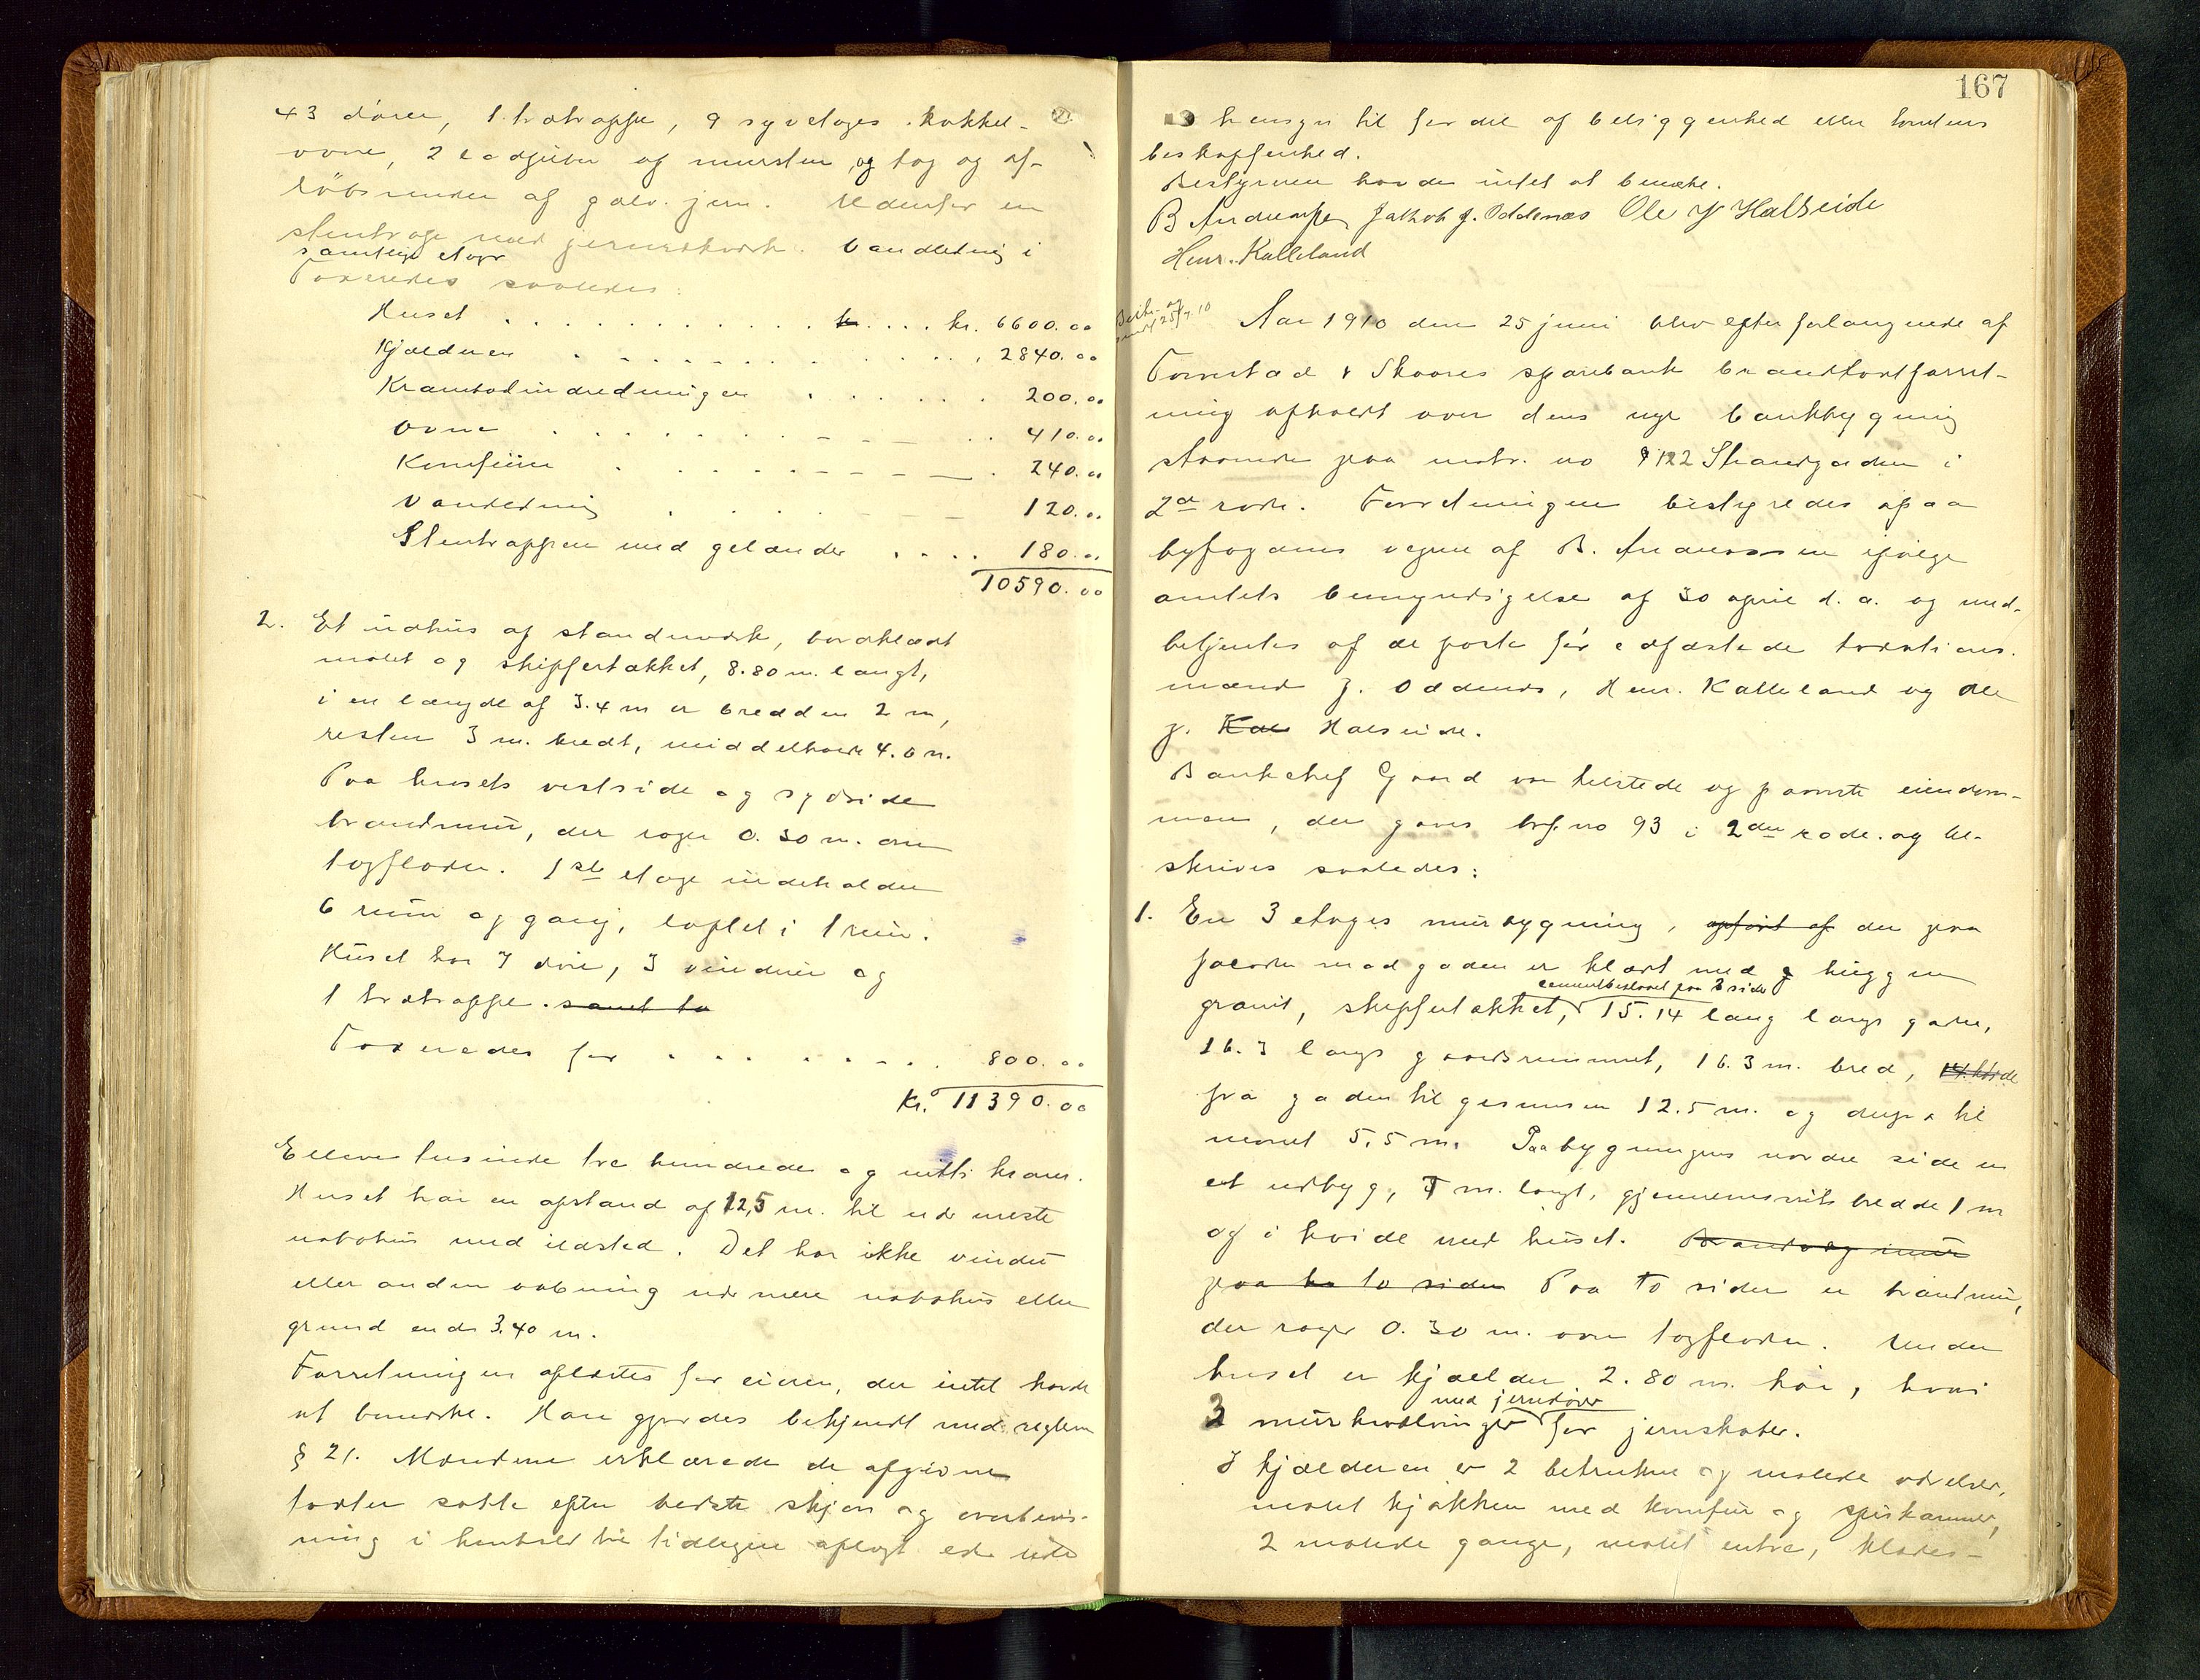 43 dører, 1 trætrappe, 9 syvetages kakkel-
ovne, 2 ladpiber af mursten og tag og af-
løbsrender af galv. jern. Udenfor en
stentrappe med jernrækværk. Vandledning i
samtlige etager
Taxeredes saaledes:
Huset . . . . kr. 6600.00
Kjælderen . . . . 2840.00
Krambodindredningen . . . . 200.00
Ovne . . . . 410.00
Komfürer . . . . 240.00
Vandledning . . . . 120.00
Stentrappen med gelænder . . . . 180.00
10590.00
2. Et udhus af standerverk, bordklædt
malet og skifertækket, 8.80 m. langt,
i en længde af 3.4 m er bredden 2 m,
resten 3 m. bredt, middelhøide 4.6 m.
Paa husets vestside og sydside
brandmur, der rager 0.30 m. over
tagfladen. 1ste etage indeholder
6 rum og gang, loftet i 1 rum.
Huset har 7 døre, 3 vinduer og
1 trætrappe. samt to
Taxeredes for . . . . 800.00
Kr. 11390.00
Elleve tusinde tre hundrede og nitti kroner.
Huset har en afstand af 12,5 m. til nærmeste
nabohus med ildsted. Det har ikke vindu
eller anden aabning nærmere nabohus eller
grund end 3.40 m.
Forretningen oplæstes for eieren, der intet havde
at bemerke. Han gjordes bekjendt med reglem
§ 21. Mændene erklærede de afgivne
taxter satte efter bedste skjøn og overbevis-
ning i henhold til tidligere aflagt ed uden
167
hensyn til fordel af beliggenhed eller tomtens
beskaffenhed.
Bestyreren havde intet at bemerke.
B Andersen Jakob J. Oddenæs Ole J Halseide
Henr. Kalleland
25/7 10
Aar 1910 den 25 juni blev efter forlangende af
Torvestad & Skaares sparebank brandtaxtforret-
ning afholdt over dens nye bankbygning
staaende paa matr. no 122 Strandgaden i
2den rode. Forretningen bestyredes paa
byfogdens vegne af B. Andersen ifølge
amtets bemyndigelse af 30 april d. a. og med-
betjentes af de faste før edfæstede taxations-
mænd J. Oddenæs, Henr. Kalleland og Ole
J. Kal Halseide.
Bankchef Gaard var tilstede og paaviste eiendom-
men, der gives brf. no 93 i 2den rode. og be-
skrives saaledes:
1. En 3 etages murbygning, opført af der paa
facaden mod gaden er klædt med huggen
cementbeslaaet paa 3 sider
granit, skifertækket, 15.14 lang langs gaden,
16.3 langs gaardsrummet, 16.3 m. bred, 14. høide
fra gaden til gesimsen 12.5 m. og derfra til
mønet 5.5 m. Paa bygningens nordre side er
et udbyg, 7 m. langt, gjennemsnits bredde 1 m
og i høide med huset. Brandvæg mur
paa to to sider Paa to sider er brandmur,
der rager 0.30 m. over tagfladen. Under
huset er kjælder 2.80 m. høi, hvori
med jerndører
3 murhvælvinger for jernskabe.
I kjælderen er 2 betrukne og malede værelser,
malet kjøkken med komfur og spiskammer,
2 malede gange, malet entre, klædes-